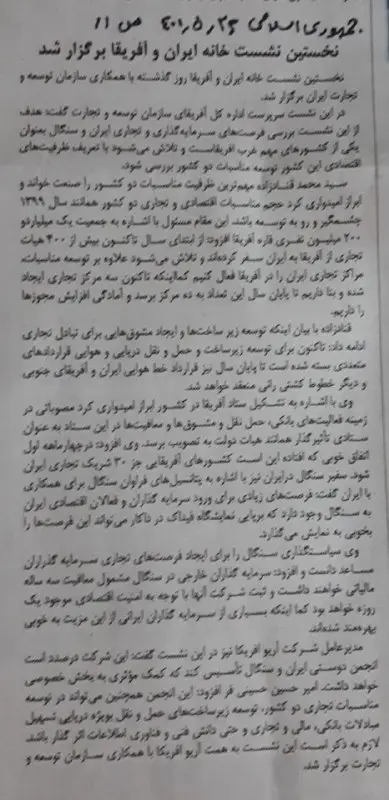 جمهوری اسلامی ۴۰۱٫۵٫۲۳ ص ۱۱
نخستین نشست خانه ایران و آفریقا برگزار شد
نخستین نشست خانه ایران و آفریقا روز گذشته با همکاری سازمان توسعه و
تجارت ایران برگزار شد.
در این نشست سرپرست اداره کل آفریقای سازمان توسعه و تجارت گفت: هدف
از این نشست بررسی فرصت‌های سرمایه‌گذاری و تجاری ایران و سنگال بعنوان
یکی از کشورهای مهم غرب آفریقاست و تلاش می‌شود با تعریف ظرفیت‌های
اقتصادی این کشور توسعه مناسبات دو کشور بررسی شود.
سید محمد قنادزاده مهم‌ترین ظرفیت مناسبات دو کشور را صنعت خواند و
ابراز امیدواری کرد حجم مناسبات اقتصادی و تجاری دو کشور همانند سال ۱۳۹۹
چشمگیر و رو به توسعه باشد. این مقام مسئول با اشاره به جمعیت یک میلیاردو
۲۰۰ میلیون نفری قاره آفریقا افزود: از ابتدای سال تاکنون بیش از ۴۰۰ هیات
تجاری از آفریقا به ایران سفر کرده‌اند و تلاش می‌شود علاوه بر توسعه مناسبات،
مراکز تجاری ایران را در آفریقا فعال کنیم کمااینکه تاکنون سه مرکز تجاری ایجاد
شده و بنا داریم تا پایان سال این تعداد به ده مرکز برسد و آمادگی افزایش مجوزها
را داریم.
قنادزاده با بیان اینکه توسعه زیر ساخت‌ها و ایجاد مشوق‌هایی برای تبادل تجاری
ادامه داد: تاکنون برای توسعه زیرساخت و حمل و نقل دریایی و هوایی قراردادهای
متعددی بسته شده است تا پایان سال نیز قرارداد خط هوایی ایران و آفریقای جنوبی
و دیگر خطوط کشتی رانی منعقد خواهد شد.
وی با اشاره به تشکیل ستاد آفریقا در کشور ابراز امیدواری کرد مصوباتی در
زمینه فعالیت‌های بانکی، حمل نقل و مشوق‌ها و معافیت‌ها در این ستاد به عنوان
ستادی تأثیرگذار همانند هیات دولت به تصویب برسد. وی افزود: درچهارماهه اول
اتفاق خوبی که افتاده این است کشورهای آفریقایی جز ۳۰ شریک تجاری ایران
شود. سفیر سنگال درایران نیز با اشاره به پتانسیل‌های فراوان سنگال برای همکاری
با ایران گفت: فرصت‌های زیادی برای ورود سرمایه گذاران و فعالان اقتصادی ایران
به سنگال وجود دارد که برپایی نمایشگاه فیداک در داکار می‌تواند این فرصت‌ها را
بخوبی به نمایش می‌گذارد.
وی سیاستگذاری سنگال را برای ایجاد فرصت‌های تجاری سرمایه گذراران
مساعد دانست و افزود: سرمایه گذاران خارجی در سنگال مشمول معافیت سه ساله
مالیاتی خواهند داشت و ثبت شرکت آنها با توجه به امنیت اقتصادی موجود یک
روزه خواهد بود کما اینکه بسیاری از سرمایه گذاران ایرانی از این مزیت به خوبی
بهره‌مند شده‌اند.
مدیرعامل شرکت آریو آفریکا نیز در این نشست گفت: این شرکت درصدد است
انجمن دوستی ایران و سنگال تأسیس کند که کمک مؤثری به بخش خصوصی
خواهد داشت. امیر حسین حسینی فر افزود: این انجمن همچنین می‌تواند در توسعه
مناسبات تجاری دو کشور، توسعه زیرساخت‌های حمل و نقل بویژه دریایی تسهیل
مبادلات بانکی، مالی و تجاری و حتی دانش فنی و فناوری اطلاعات اثر گذار باشد.
لازم به ذکر است این نشست به همت آریو آفریکا با همکاری سازمان توسعه و
تجارت برگزار شد.